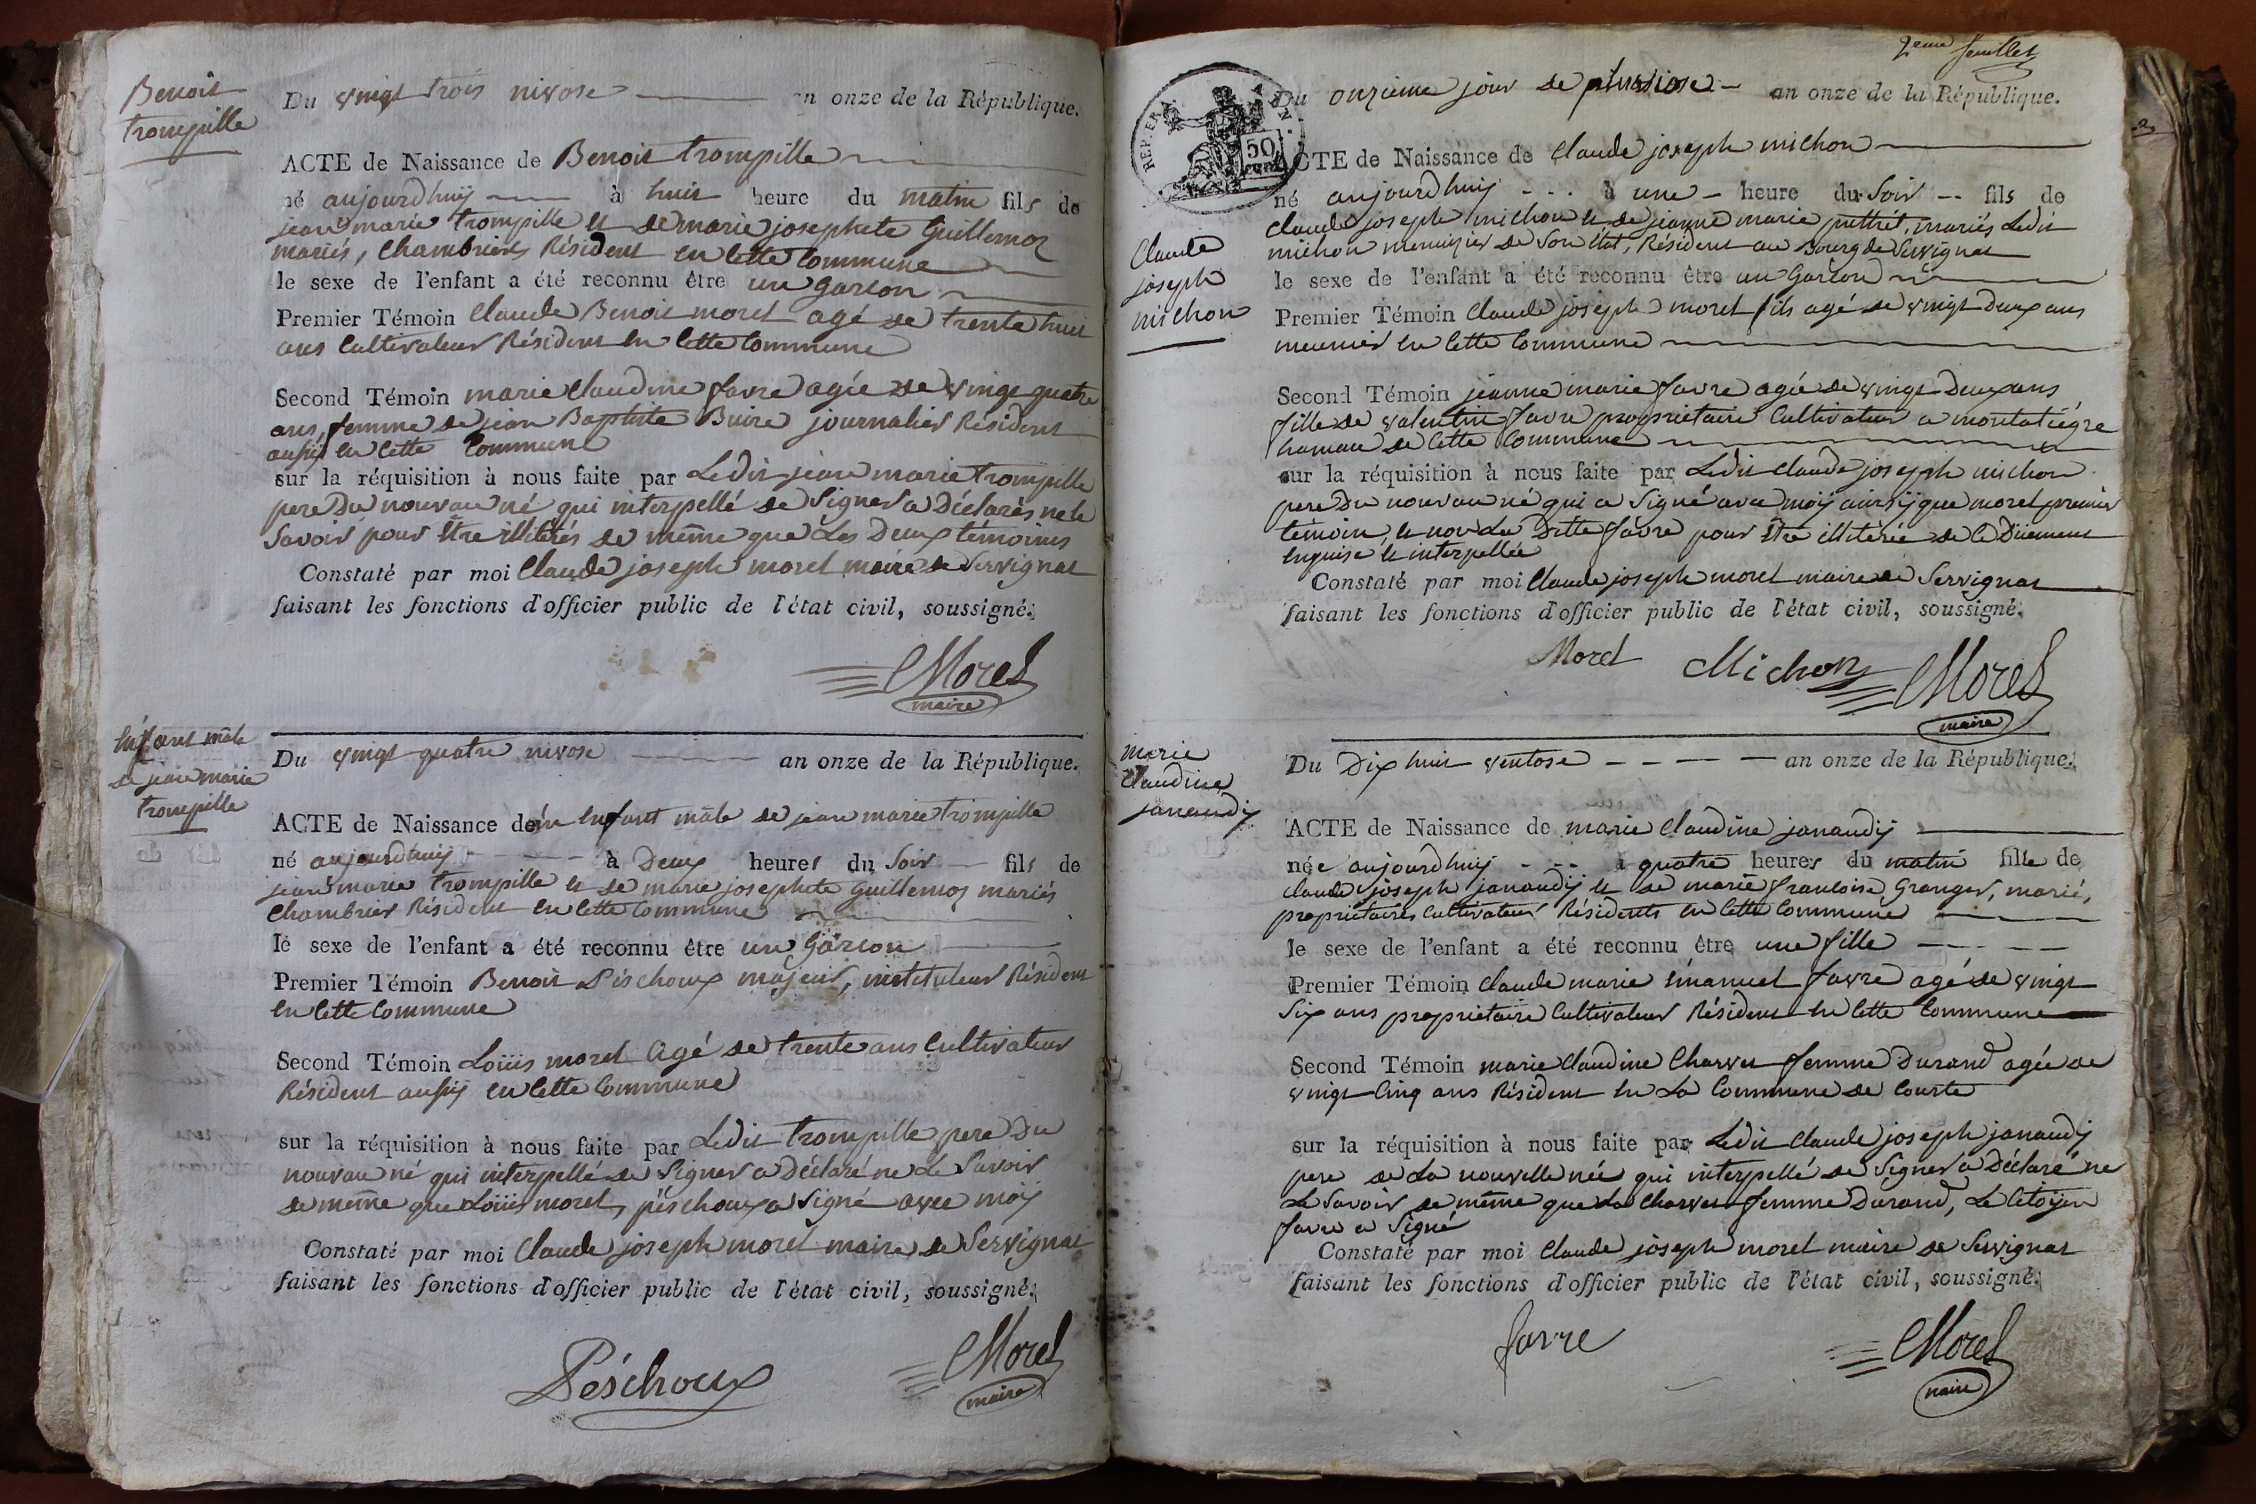 Benoit
trompille
Du vingt trois nivose an onze de la République.
ACTE de Naissance de Benoit trompille
né aujourdhuij à huit heure du matin fils de
jean marie trompille et de marie josephete Guillemoz
mariés, chambriers Résident en cette commune
le sexe de l'enfant a été reconnu être un garcon
Premier Témoin Claude Benoit morel agé de trente huit
ans cultivateur Résident en cette commune
Second Témoin marie claudine favre agée de vingt quatre
ans, femme de jean Baptiste Buire journalier Résident
aussij en cette commune
sur la réquisition à nous faite par Ledit jean marie trompille
pere du nouveau né qui interpellé de signer a déclarés ne le
savoir pour être illiterés de même que les deux témoins
Constaté par moi Claude joseph morel maire de Servignat
faisant les fonctions d'officier public de l'état civil, soussigné.
Morel
maire
Enfant mâle
de jean marie
trompille
Du vingt quatre nivose an onze de la République.
ACTE de Naissance d'un enfant mâle de jean marie trompille
né aujourdhuij à deux heures du soir fils de
jean marie trompille et de marie josephete Guillemoz mariés
chambrier Résident en cette commune
le sexe de l'enfant a été reconnu être un garcon
Premier Témoin Benoit Péschoux majeur, instituteur Résident
en cette commune
Second Témoin Loüis morel agé de trente ans cultivateur
Résident aussij en cette commune
sur la réquisition à nous faite par Ledit trompille pere du
nouveau né qui interpellé de signer a déclaré ne le savoir
de même que Loüis morel, péschoux a signé avec moij
Constaté par moi Claude joseph morel maire de Servignat
faisant les fonctions d'officier public de l'état civil, soussigné.
Péschoux
Morel
maire
2eme feuillet
2
REP. FRA
50
CENT.
Du onzieme jour de pluviose an onze de la République.
Claude
joseph
michon
ACTE de Naissance de Claude joseph michon
né aujourdhuij à une heure du soir fils de
claude joseph michon et de jeanne marie puthet, mariés Ledit
michon menuizier de son état, Résident au bourg de Servignat
le sexe de l'enfant a été reconnu être un Garcon
Premier Témoin Claude joseph morel fils agé de vingt deux ans
meunier en cette commune
Second Témoin jeanne marie favre agée de vingt deux ans
fille de valentin favre proprietaire cultivateur a montatiégre
hameau de cette commune
sur la réquisition à nous faite par Ledit claude joseph michon
pere du nouveau né qui a signé avec moij ainsij que morel premier
témoin, et non La ditte favre pour être illiterée de ce düement
enquise et interpellée
Constaté par moi Claude joseph morel maire de Servignat
faisant les fonctions d'officier public de l'état civil, soussigné.
Morel Michon Morel
maire
marie
claudine
janaudij
Du Dix huit ventose an onze de la République.
ACTE de Naissance de marie claudine janaudij
née aujourdhuij à quatre heures du matin fille de
claude joseph janaudij et de marie francoise Granger, marié,
proprietaires cultivateurs Résidents en cette commune
le sexe de l'enfant a été reconnu être une fille
Premier Témoin Claude marie émanuel favre agé de vingt
six ans proprietaire cultivateur Résident en cette commune
Second Témoin marie claudine Charvet femme Durand agée de
vingt cinq ans Résident en La commune de courte
sur la réquisition à nous faite par Ledit claude joseph janaudij
pere de La nouvelle née qui interpellé de signer a déclaré ne
Le savoir de même que La charvet femme Durand, Le Citoÿen
favre a signé
Constaté par moi Claude joseph morel maire de Servignat
faisant les fonctions d'officier public de l'état civil, soussigné.
favre
Morel
maire